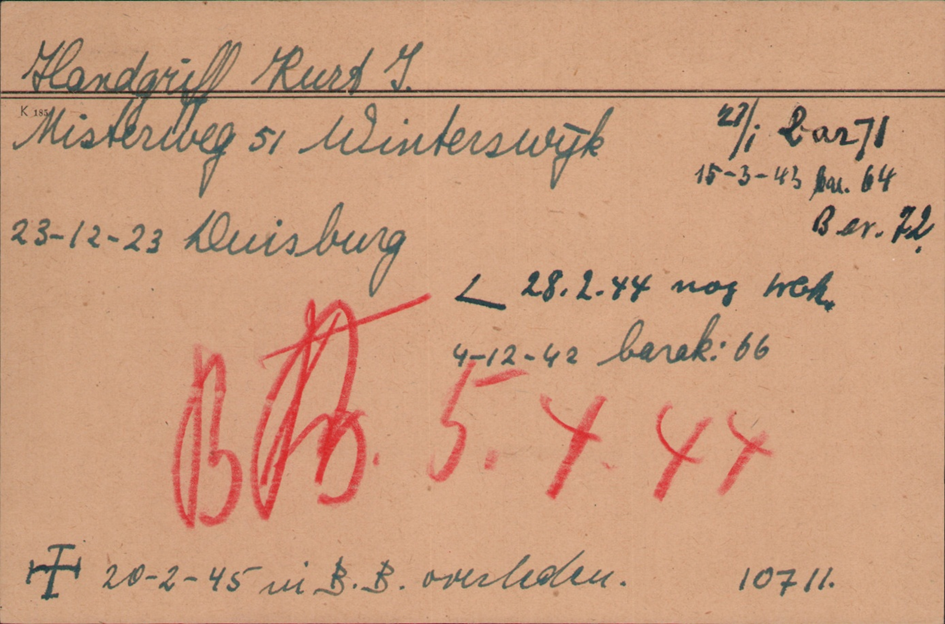 Handgriff Kurt I.
K 185
Misterweg 51 Winterswijk
27/1 bar 71
15-3-43 bar. 64
23-12-23 Duisburg
Bar. 72
28.2.44 nog
4-12-42 barak: 66
5.4.44
20-2-45 in B.B. overleden.
10711.